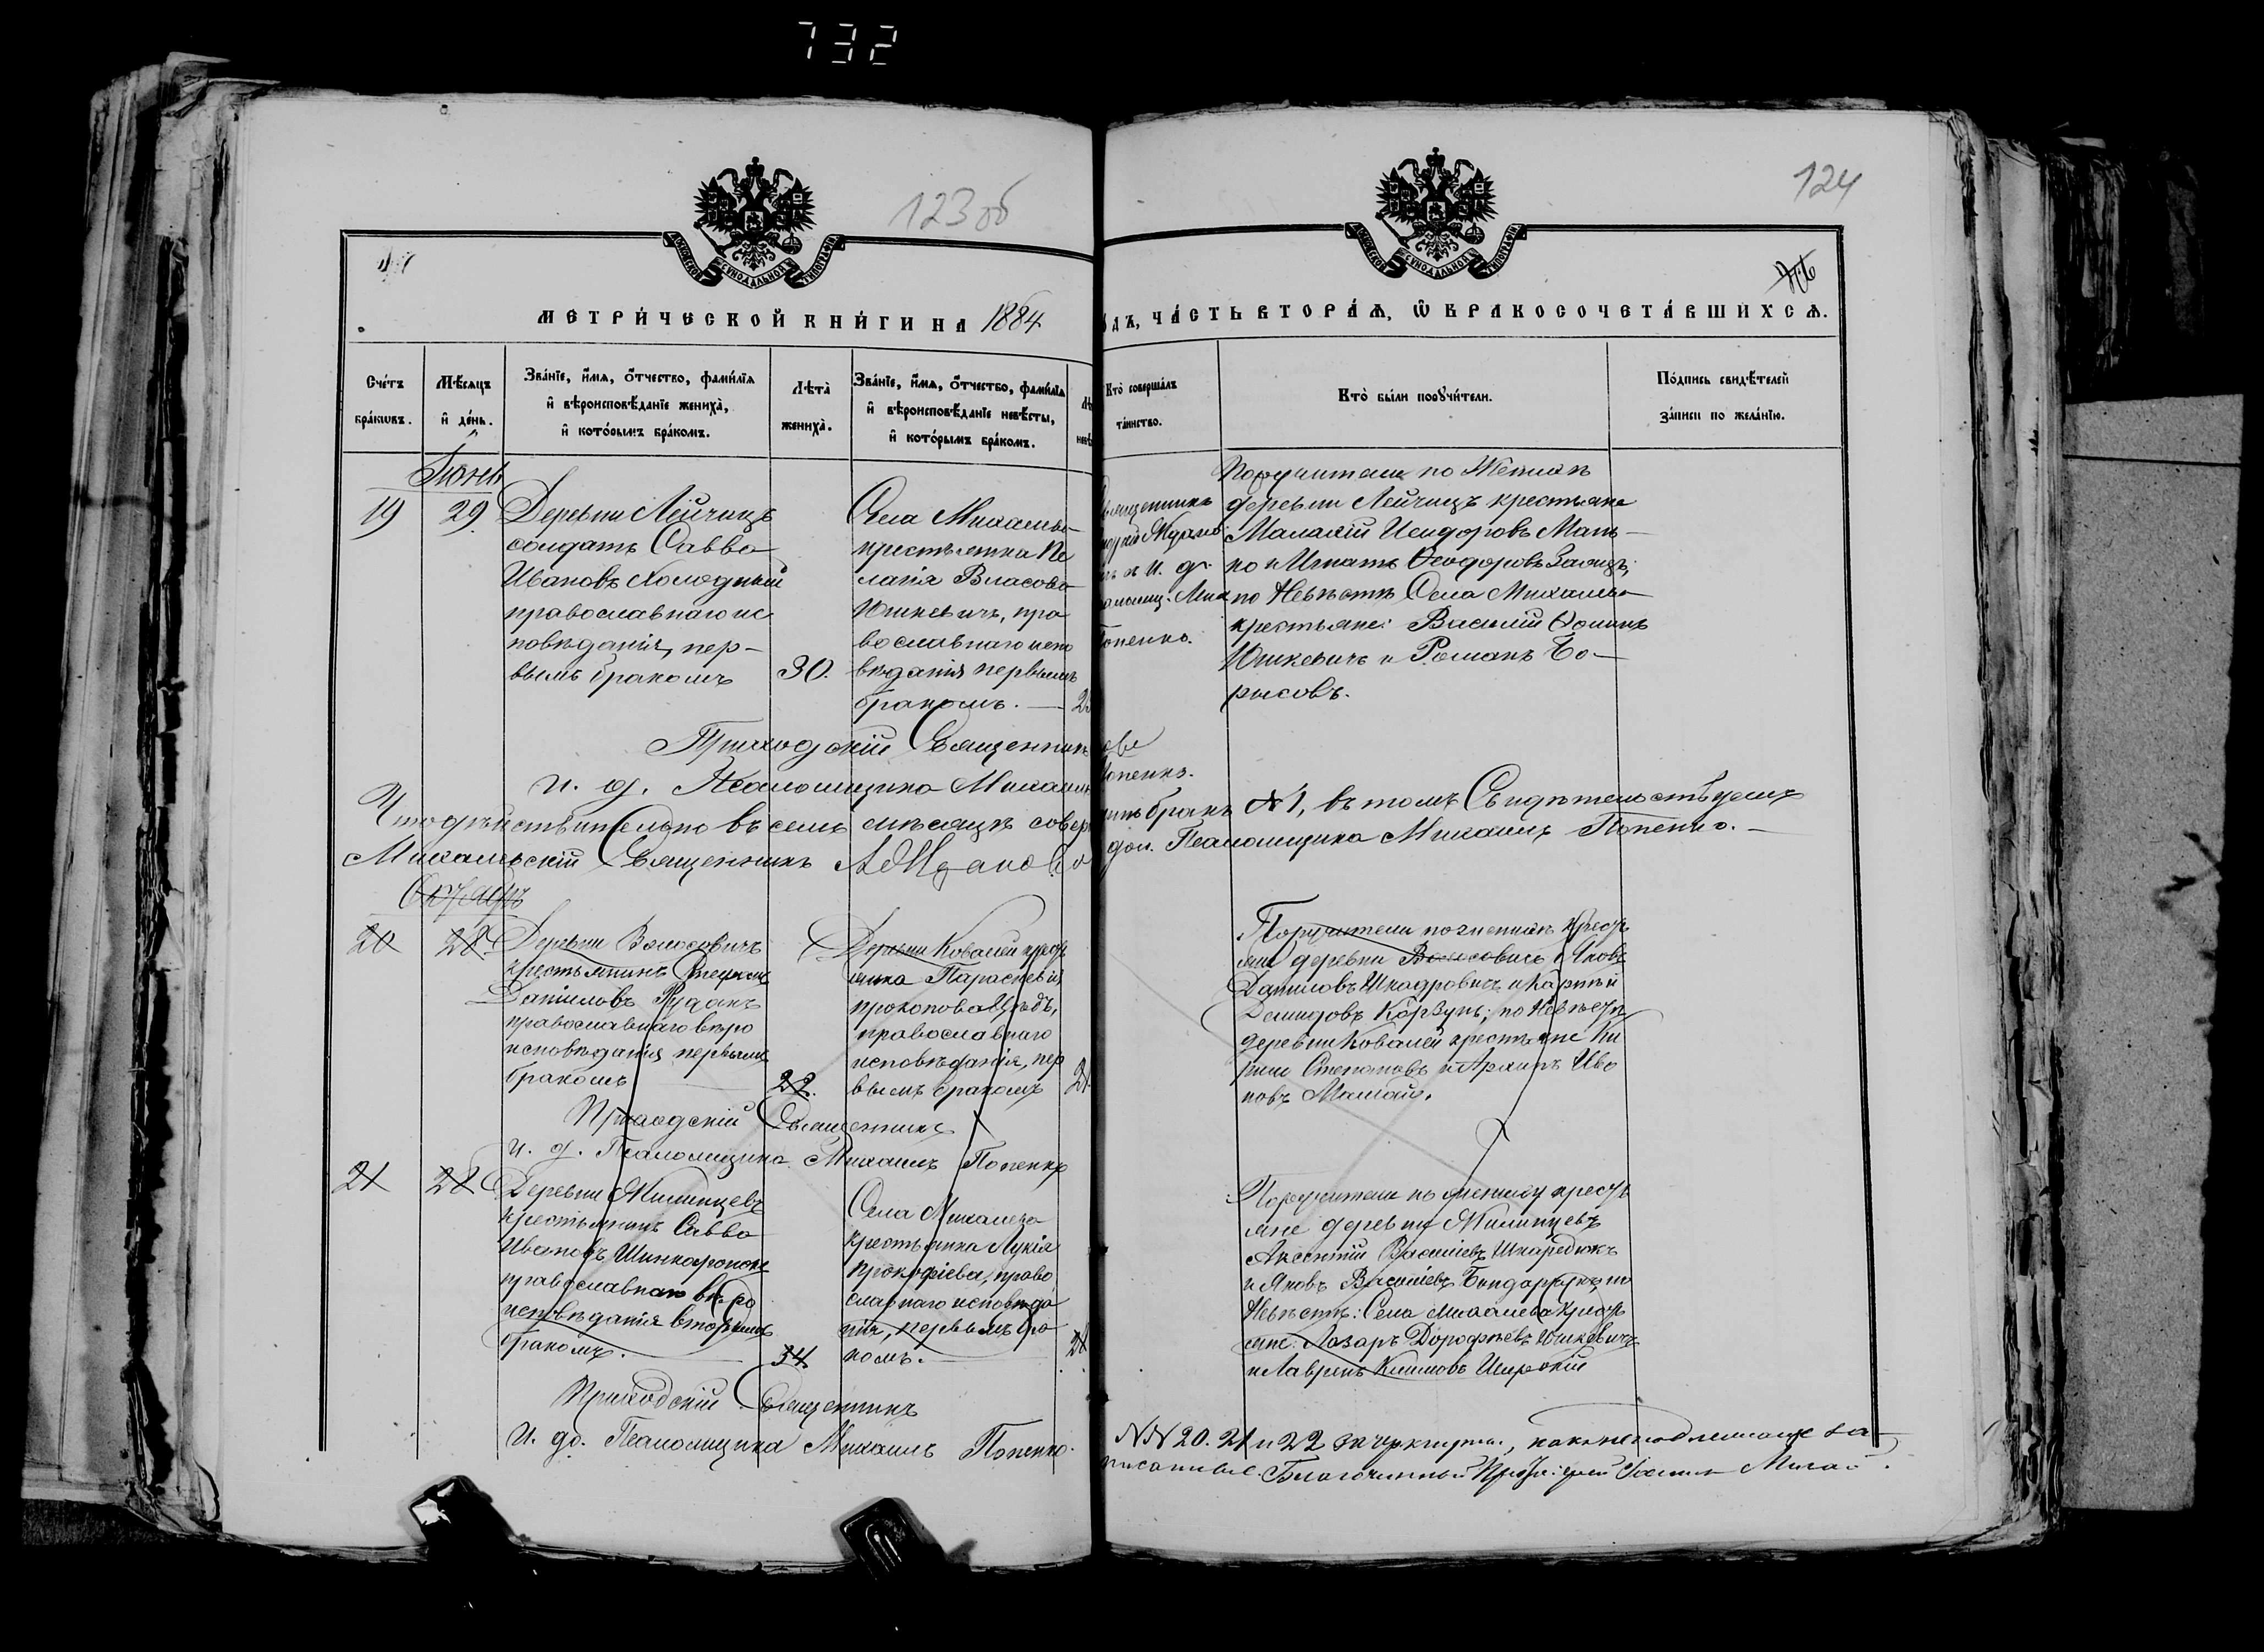 732
123 об
124
МОСКОВСКОЙ СѴНОДАЛЬНОЙ ТИПОГРАФІИ
МОСКОВСКОЙ СѴНОДАЛЬНОЙ ТИПОГРАФІИ
МЕТРИ́ЧЕСКОЙ КНИ́ГИ НА 1884
ДЪ, ЧА́СТЬ ВТОРА́Ѧ, Ѡ БРАКОСОЧЕТА́ВШИХСѦ.
Сче́тъ бра́кѡвъ.
Мѣ́сяцъ и҆ де́нь.
Зва́нїе, и҆́мѧ, ѻ҆́тчество, фами́лїѧ
и҆ вѣроисповѣ́данїе жениха̀,
и҆ кото́рымъ бра́комъ.
Лѣта̀ жениха̀.
Зва́нїе, и҆́мѧ, ѻ҆́тчество, фами́лїѧ
и҆ вѣроисповѣ́данїе невѣ́сты,
и҆ кото́рымъ бра́комъ.
Кто̀ соверша́лъ
та́инство.
Кто̀ бы́ли порꙋчи́тели.
По́дпись свидѣ́телей
за́писи по жела́нїю.
Іюнь
19
29
Деревни Лейчицъ
солдатъ Савва
Ивановъ Холодный
православнаго ис
повѣданія, пер-
вымъ бракомъ
30.
Села Михалева
крестьянка Пе
лагія Власова
Юшкевичъ, пра
вославнаго испо
вѣданія первымъ
бракомъ.
и. д.
Попенко.
Поручители по Женихѣ
деревни Лейчицъ крестьяне
Малахій Исидоровъ Мань-
ко и Игнатъ Ѳеодоровъ Заяцъ;
по Невѣстѣ Села Михалева
крестьяне: Василій Ѳоминъ
Юшкевичъ и Романъ Бо-
рисовъ.
Приходскій Священникъ
и. д. Псаломщика Михаилъ
Попенко.
Что дѣйствительно въ семъ мѣсяцѣ совер
бракъ №1, въ томъ Свидѣтельствуемъ
Михалевскій Священникъ
Псаломщика Михаилъ Попенко.
Октябрь
20
28
Деревни Волосовичъ
крестьянинъ
Даніиловъ Руданъ
православнаго вѣро
исповѣданія первымъ
бракомъ
22.
Деревни Ковалей крест
янка Параскевія
Прокопова
православнаго
исповѣданія, пер
вымъ бракомъ
21
Поручители по женихѣ крест
яне деревни Волосовичъ Яковъ
Даниловъ Шкадровичъ и Карпъ
Демидовъ Корзунъ; по Невѣстѣ
деревни Ковалей крестьяне Ки
Степановъ и Архипъ Ива
новъ
Приходскій Священникъ
и. д. Псаломщика Михаилъ Попенко
21
28
Деревни
крестьянинъ Савва
Ивановъ
православнаго вѣро
исповѣданія вторымъ
бракомъ.
34
Села Михалева
крестьянка Лукія
Прокофіева, право
славнаго исповѣда
нія, первымъ бра
комъ.
Поручители по жениху крест
яне деревни
Авксентій Василіевъ
и Яковъ Василіевъ Бондаренко, по
Невѣстѣ: Села Михалева крест
яне: Лазарь Дорофѣевъ Юшкевичъ
и Лаврѣнъ Климовъ
Приходскій Священникъ
И. до. Псаломщика Михаилъ Попенко.
№№ 20. 21 и 22 зачеркнуты, какъ неподлежаще за-
писанные. Благочинный